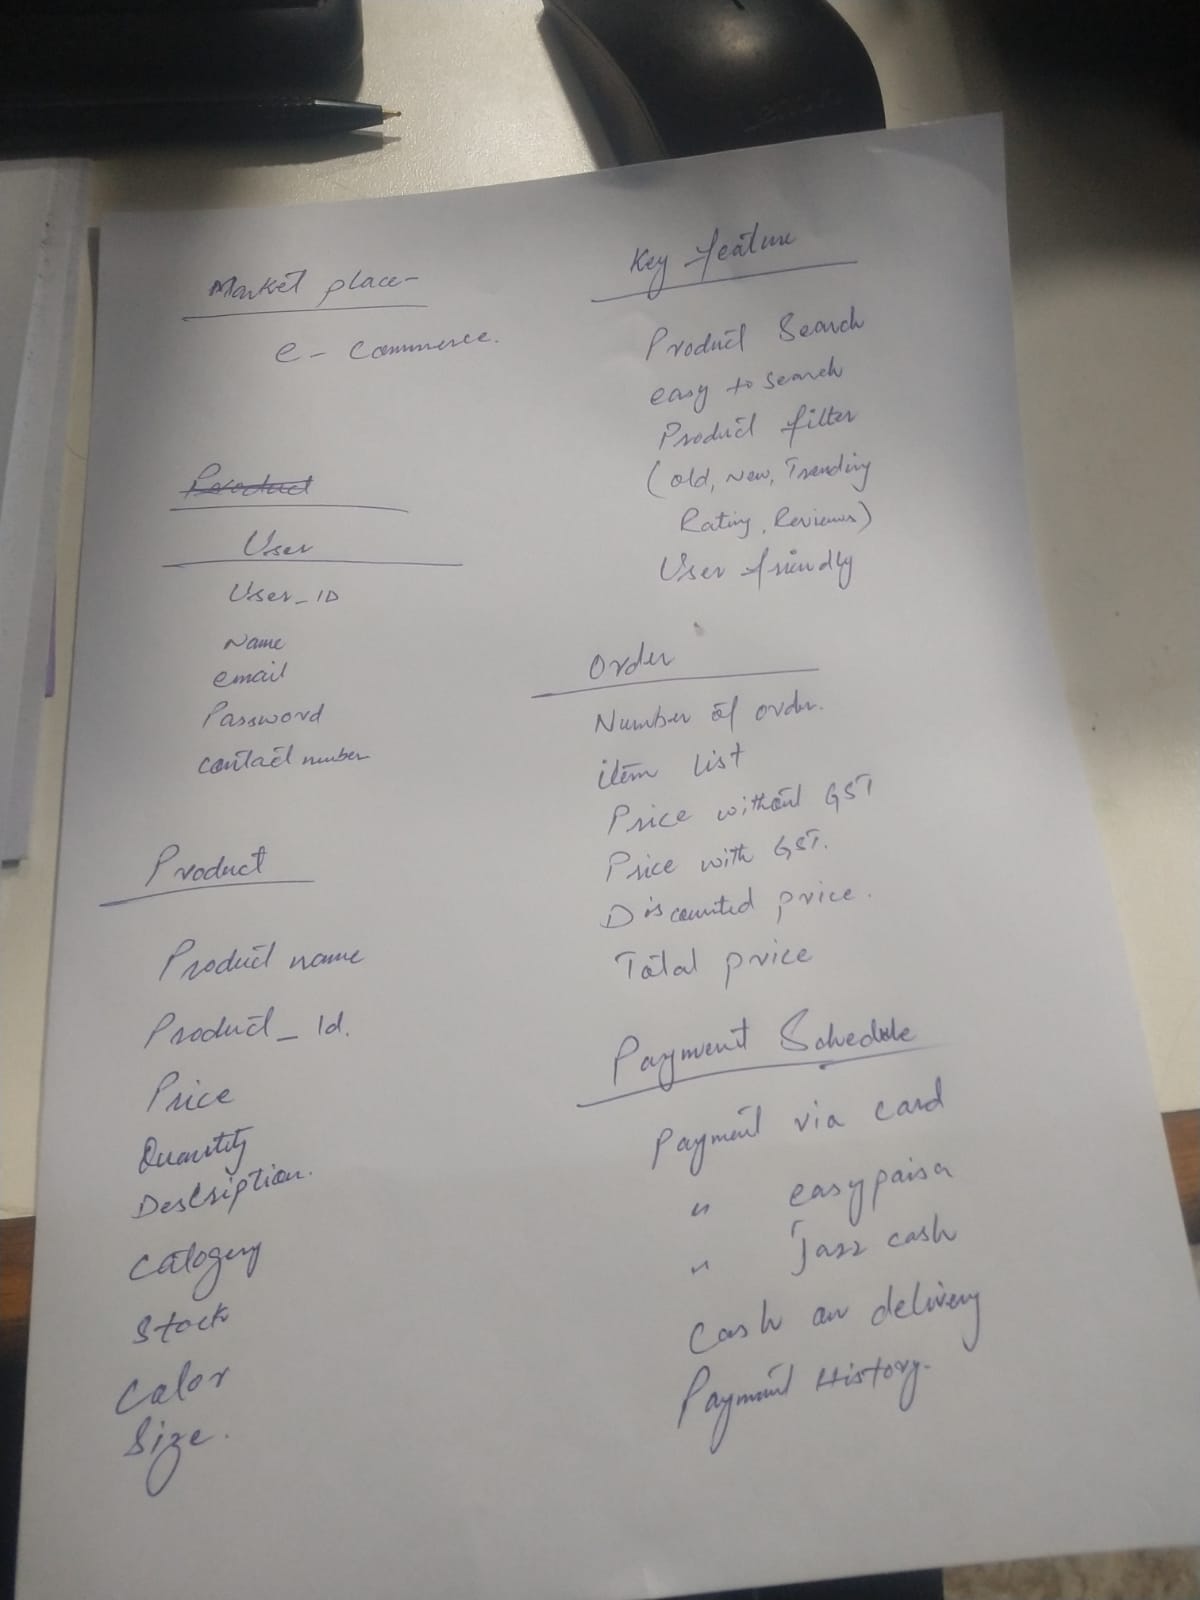 Market place-
e - Commerce.
Product
User
User_ID
Name
email
Password
contact number
Product
Product name
Product_Id.
Price
Quantity
Description.
Catogery
Stock
Calor
Size.
Key feature
Product Search
easy to search
Product filter
(old, New, Trending
Rating, Reviews)
User friendly
Order
Number of order.
item list
Price without GST
Price with GST.
Discounted price.
Total price
Payment Schedule
Payment via card
" easypaisa
" Jazz cash
Cash on delivery
Payment History.